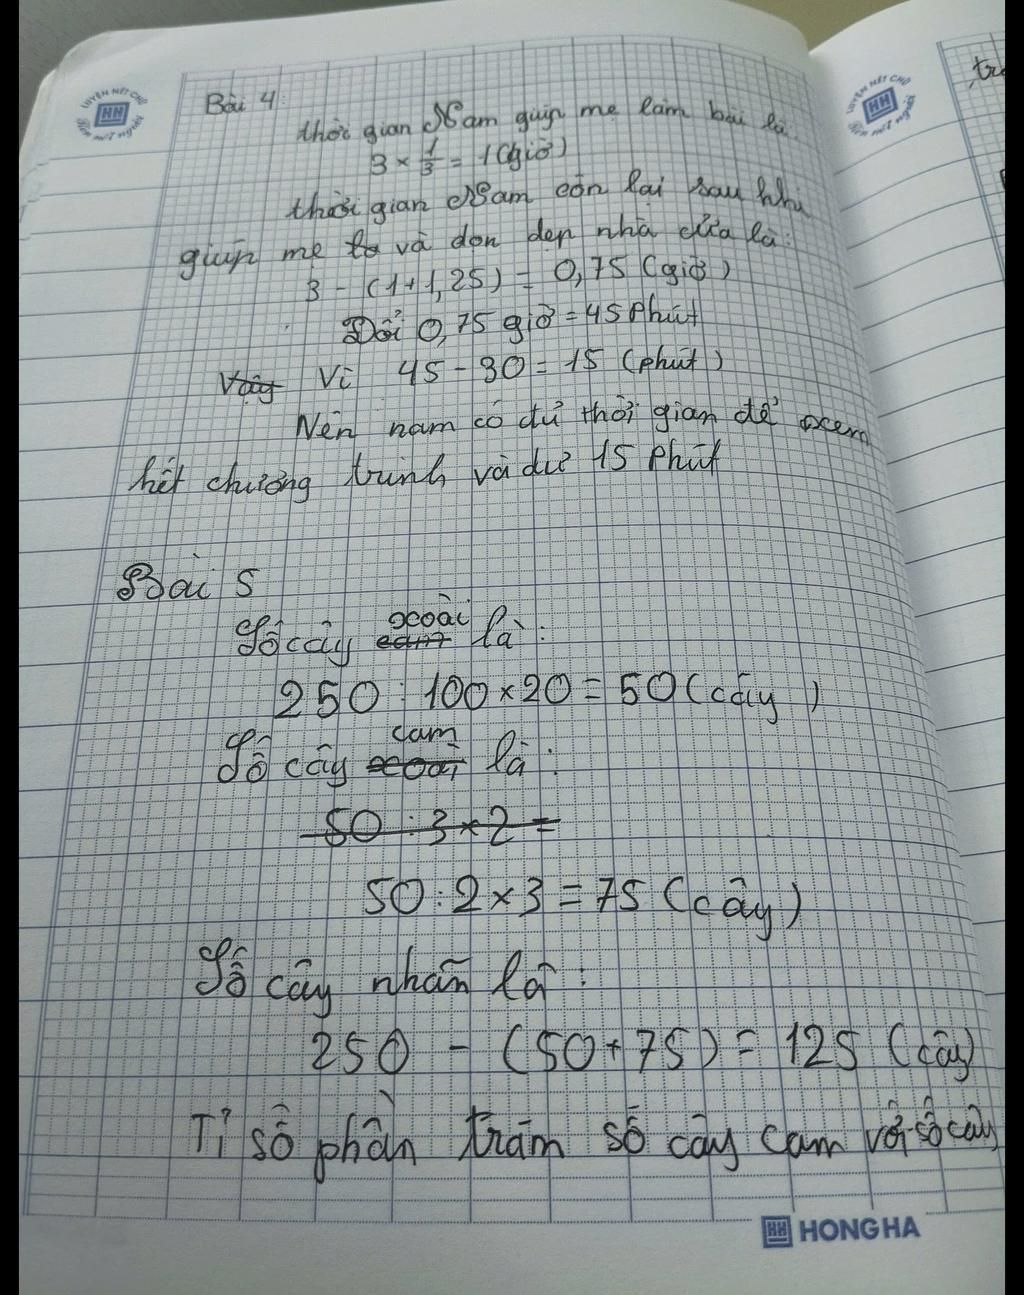 LUYỆN NÉT CHỮ
HH
Rèn nết người
LUYỆN NÉT CHỮ
HH
Rèn nết người
Bài 4:
thời gian Nam giúp mẹ làm bài là
3 × 1/3 = 1 (giờ)
thời gian Nam còn lại sau khi
giúp mẹ và dọn dẹp nhà cửa là:
3 - (1+1,25) = 0,75 (giờ)
Đổi 0,75 giờ = 45 Phút
Vậy Vì 45 - 30 = 15 (phút)
Nên nam có đủ thời gian để xem
hết chương trình và dư 15 Phút
Bài 5
Số cây cam xoài là:
250 : 100 × 20 = 50 (cây)
Số cây xoài cam là:
50 : 3 × 2 =
50 : 2 × 3 = 75 (cây)
Số cây nhãn là:
250 - (50 + 75) = 125 (cây)
Tỉ số phần trăm số cây cam với số cây
HH HONG HA